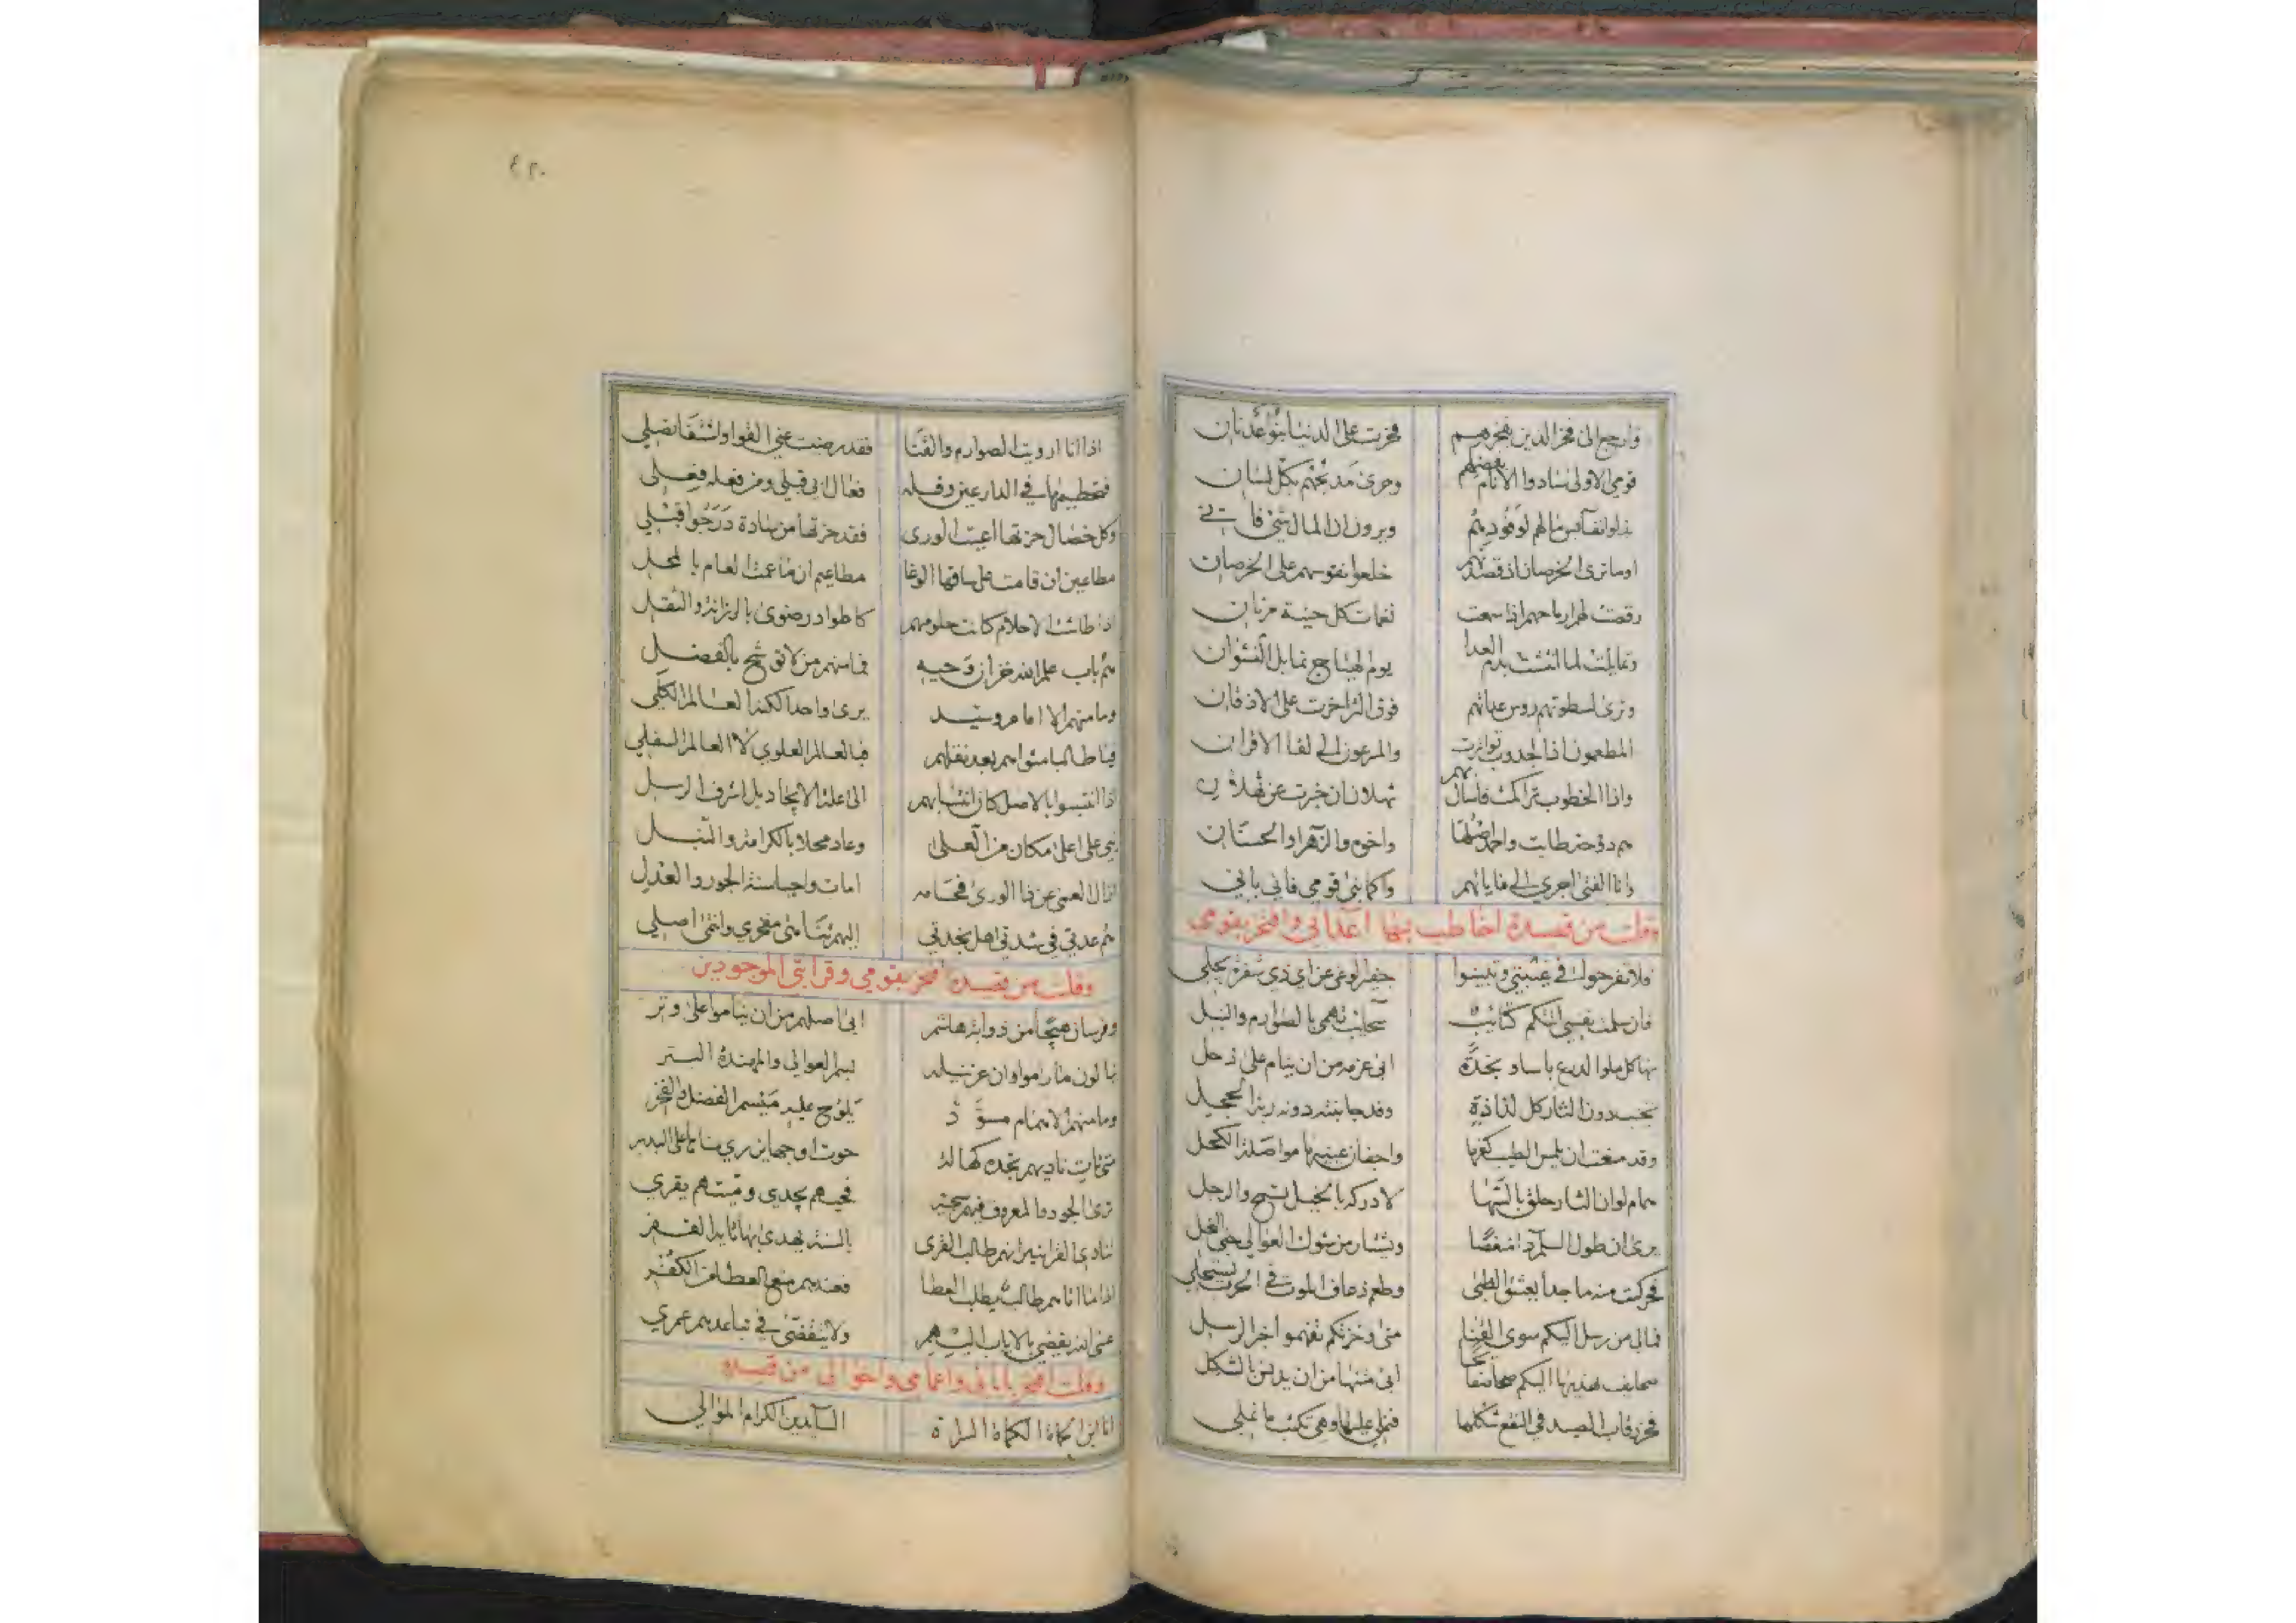 وارجع الى فخر الذين بفخرهم فخرت على الدنيا بنو عدنان
قومي الاولى سادوا الانام بفضلهم وجرى مديحهم بكل لسان
بذلوا نفايس مالهم لوفودهم ويرون ان المال شئ فاني
اوما ترى الخرصان اذ قصدتهم خلعوا نفوسهم على الخرصان
رقصت لهم ارماحهم اذا سمعت نغمات كل حنية مرنان
وتمايلت لما انتشت بدم العدا يوم الهياج تمايل النشوان
وترى لسطوتهم روس عداتهم فوق الثرا خرت على الاذقان
المطعمون اذا الجدوب تواترت والمرعون الى لقا الاقران
واذا الخطوب تراكمت فاسال بهم ثهلان ان خبرت عن ثهلان
هم دوحة طابت واحمد اصلها واخوه والزهرا والحسنان
وانا الفتى اجري الى غاياتهم واكما بنى قومي فاني باني
وقلت من قصيدة اخاطب بها اعدائي وافتخر بقومي
فلا تفرحوا في غيبتي وتبينوا جفير الوغى عن اي ذي شفرة يجلي
فان سلمت نفسي اتتكم كتائب سحائب تهمي بالصوارم والنبل
بها كل ملوا الدرع باسا ونجدة ابى عزمه من ان ينام على ذحل
تجنب دون الثار كل لذاذة وقد جانبته دونه ربة الحجل
وقد منعت ان يلمس الطيب كفها واجفان عينيها مواصلة الكحل
همام لو ان الثار حلق بالسها لادركه بالخيل تسبح والرجل
يرى ان طول السلم دا منغصا ويشتار من شوك العوالي جنى النحل
فحركت منه ماجدا يعشق الظبى وطعم ذعاف الموت في الحرب يستحلي
فمالي من رسل اليكم سوى القنا متى وخزتكم تفهموا اخر الرسل
صحايف تهديها اليكم صحائفا ابى متنها من ان يدنس بالشكل
فحز رقاب الصيد في النقع شكلها فنملي عليها وهي تكتب ما نملي
٤٢٠
اذا انا ارويت الصوارم والقنا فقد رضت عني القوا وانتقا نصلي
فتحطيمها في الدارعين وفله فعال ابي قبلي ومن فعله فعلي
وكل خصال حزتها اعيت الورى فقد حزتها من سادة درجوا قبلي
مطاعين ان قامت على ساقها الوغا مطاعيم ان ما عمت العام بالمحل
اذا طاشت الاحلام كانت حلومهم كاطواد رضوى بالرزانة والثقل
هم باب علم الله خزان وحيه فما منهم من لا توشح بالفضل
وما منهم الا امام وسيد يرى واحدا لكنه العالم الكلي
فيا طالبا مثواهم بعد نقلهم فبالعالم العلوي لا العالم السفلي
اذا انتسبوا بالاصل كان انتسابهم الى علة الايجاد بل اشرف الرسل
نبي على اعلى مكان من العلى وعاد محلا بالكرامة والنبل
ازال العمى عن ذا الورى فحسامه امات واحيا سنة الجور والعدل
هم عدتي في شدتي اهل نجدتي اليهم تنا منى مفخري وانتمى اصلي
وقلت من قصيدة افتخر بقومي وقرابتي الموجودين
وفرسان هيجا من ذوابة هاشم ابى اصلهم من ان يناموا على وتر
ينالون ما راموا وان عز نيله بسمر العوالي والمهندة البتر
وما منهم الا همام مسود يلوح عليه ميسم الفضل والفخر
متى تات ناديهم تجده كهالة حوت اوجها يزري سناها على البدر
ترى الجود والمعروف فيهم سجية فحيهم يجدي وميتهم يقري
تنادي القرا نيرانهم طالب القرى بالسنة يهدى بها تايه القفر
اذا ما اتاهم طالب يطلب العطا فعندهم منع العطا من الكفر
عسى الله يقضي بالاياب اليهم ولا ينقضي في تباعدهم عمري
وقلت افتخر بابائي واعمامي واخوالي من قصيدة
انا ابن الكماة السراة السايدين الكرام الموالي